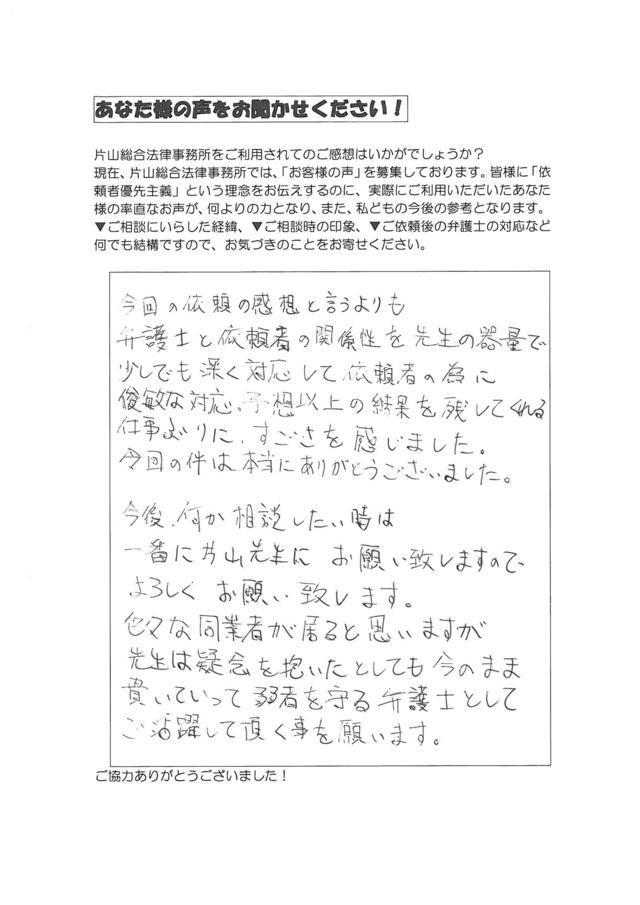 あなた様の声をお聞かせください！
片山総合法律事務所をご利用されてのご感想はいかがでしょうか？
現在、片山総合法律事務所では、「お客様の声」を募集しております。皆様に「依
頼者優先主義」という理念をお伝えするのに、実際にご利用いただいたあなた
様の率直なお声が、何よりの力となり、また、私どもの今後の参考となります。
▼ご相談にいらした経緯、▼ご相談時の印象、▼ご依頼後の弁護士の対応など
何でも結構ですので、お気づきのことをお寄せください。
今回の依頼の感想と言うよりも
弁護士と依頼者の関係性を先生の器量で
少しでも深く対応して依頼者の為に
俊敏な対応、予想以上の結果を残してくれる
仕事ぶりに、すごさを感じました。
今回の件は本当にありがとうございました。
今後、何か相談したい時は
一番に片山先生にお願い致しますので
よろしくお願い致します。
色々な同業者が居ると思いますが
先生は疑念を抱いたとしても今のまま
貫いていって弱者を守る弁護士として
ご活躍して頂く事を願います。
ご協力ありがとうございました！